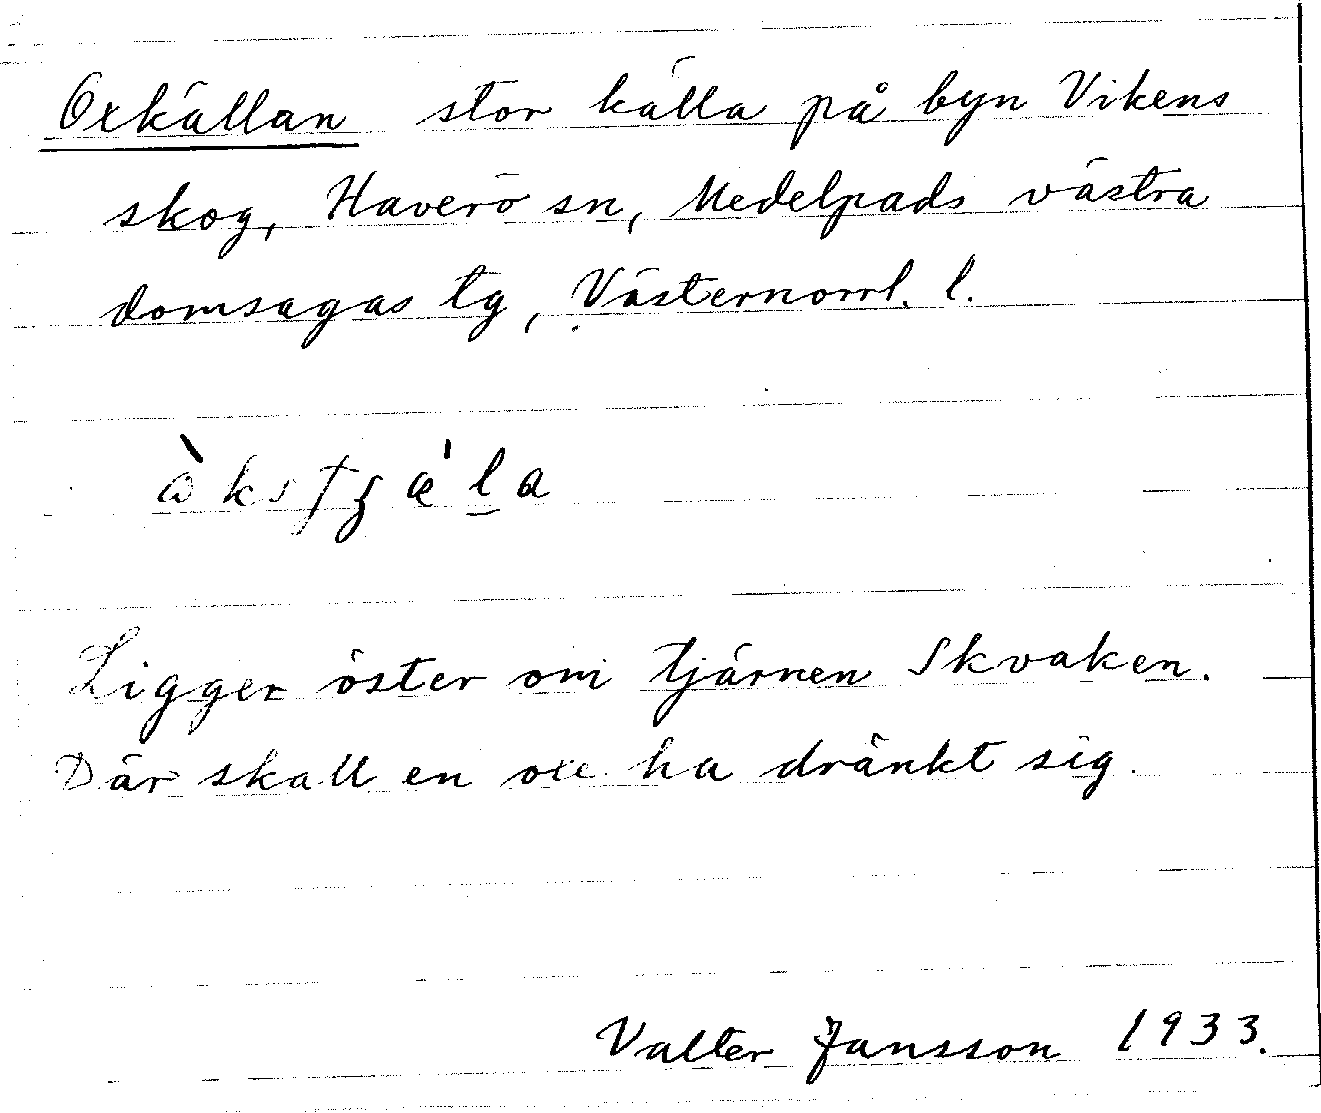 Oxkällan stor källa på byn Vikens
skog, Haverö sn, Medelpads västra
domsagas tg, Västernorrl. l.
Ligger öster om tjärnen Skvaken.
Där skall en oxe ha dränkt sig.
Valter Jansson 1933.